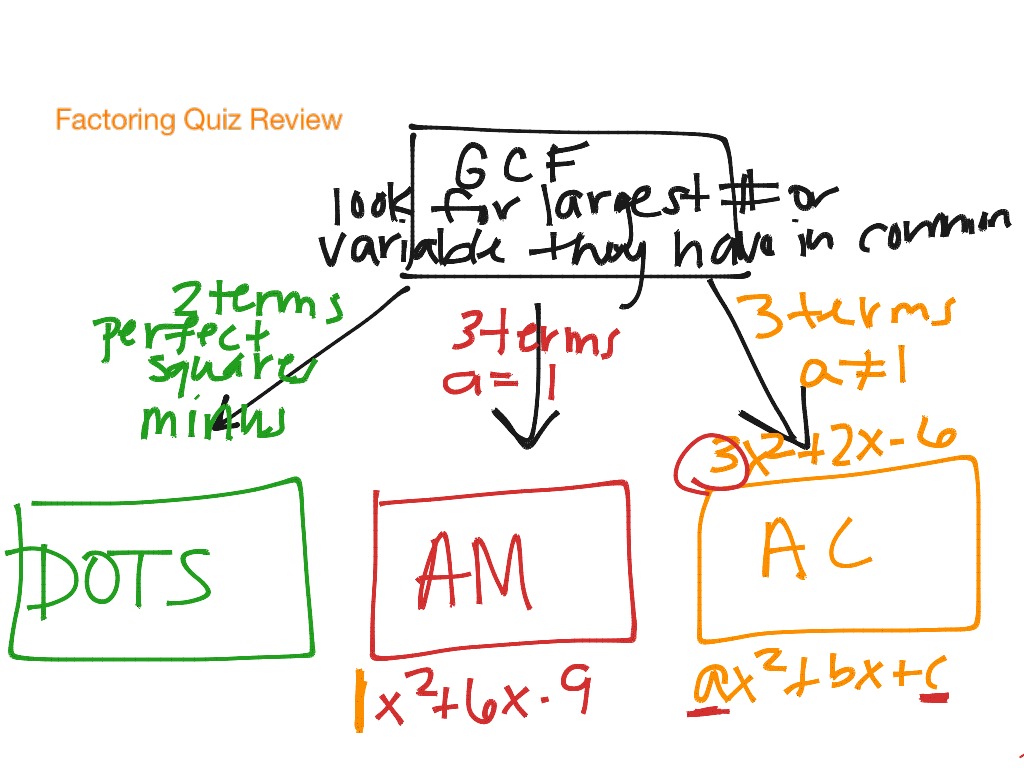 Factoring Quiz Review
GCF
look for largest # or
variable they have in common
2 terms
perfect
squares
minus
3 terms
a = 1
3 terms
a ≠ 1
3x²+2x-6
DOTS
AM
AC
1x²+6x-9
ax²+bx+c